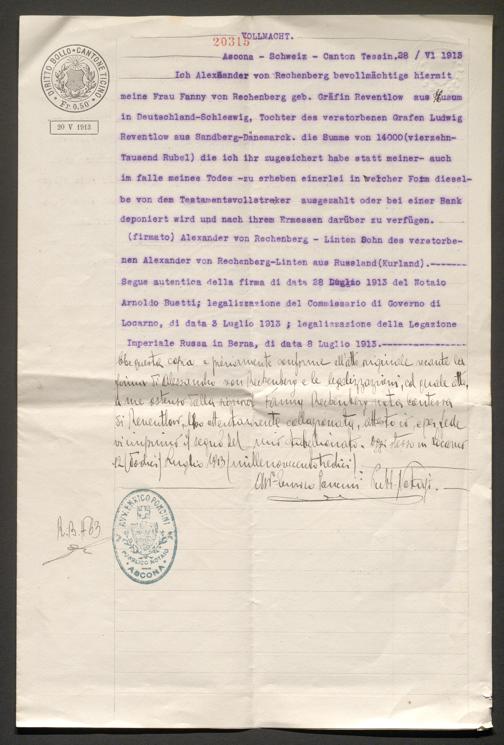 20315
VOLLMACHT.
DIRITTO BOLLO CANTONE TICINO
Fr. 0,50
20 V 1913
Ascona - Schweiz - Canton Tessin,28 / VI 1913
Ich Alexander von Rechenberg bevollmächtige hiermit
meine Frau Fanny von Rechenberg geb. Gräfin Reventlow aus Husum
in Deutschland-Schleswig, Tochter des verstorbenen Grafen Ludwig
Reventlow aus Sandberg-Dänemarck. die Summe von 14000(vierzehn-
Tausend Rubel) die ich ihr zugesichert habe statt meiner- auch
im falle meines Todes -zu erheben einerlei in welcher Form diesel-
be von dem Testamentsvollstreker ausgezahlt oder bei einer Bank
deponiert wird und nach ihrem Ermessen darüber zu verfügen.
(firmato) Alexander von Rechenberg - Linten Sohn des verstorbe-
nen Alexander von Rechenberg-Linten aus Russland(Kurland).-------
Segue autentica della firma di data 28 Luglio 1913 del Notaio
Arnoldo Buetti; legalizzazione del Commissario di Governo di
Locarno, di data 3 Luglio 1913 ; legalizzazione della Legazione
Imperiale Russa in Berna, di data 8 Luglio 1913.-----------------
questa copia è pienamente conforme all'atto originale recante la
firma di Alessandro von Rechenberg e le legalizzazioni, al quale atto,
a me ostenso dalla signora Fanny Rechenberg nata contessa
di Reventlow, dopo attentamente collazionata, attesto ed in fede
vi imprimo il segno del mio tabellionato. Oggi stesso in Locarno
12 (dodici) Luglio 1913 (millenovecentotredici).
Avv. Enrico Poncini
AVV. ENRICO PONCINI
PUBBLICO NOTAIO
ASCONA